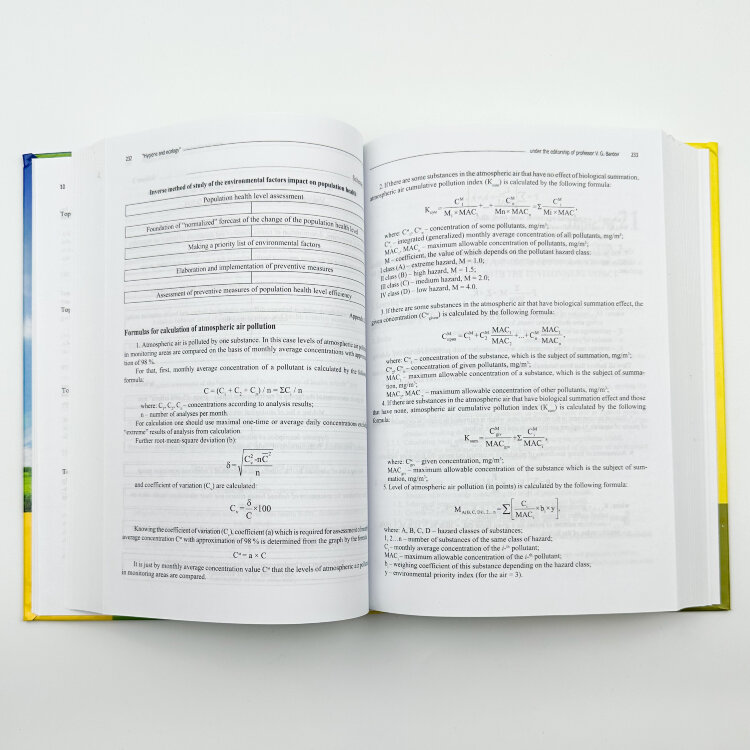 11
Top
Top
To
To
232 "Hygiene and ecology"
Inverse method of study of the environmental factors impact on population health
Population health level assessment
Foundation of "normalized" forecast of the change of the population health level
Making a priority list of environmental factors
Elaboration and implementation of preventive measures
Assessment of preventive measures of population health level efficiency
Appendix
Formulas for calculation of atmospheric air pollution
1. Atmospheric air is polluted by one substance. In this case levels of atmospheric air
in monitoring areas are compared on the basis of monthly average concentrations with
tion of 98 %.
For that, first, monthly average concentration of a pollutant is calculated by the
formula:
C = (C₁ + C₂ + Cₙ) / n = ΣCᵢ / n
where: C₁, C₂, Cₙ – concentrations according to analysis results;
n – number of analyses per month.
For calculation one should use maximal one-time or average daily concentrations
"extreme" results of analysis from calculation.
Further root-mean-square deviation (b):
δ = √((C²ᵢ-nC̅²) / n)
and coefficient of variation (Cᵥ) are calculated:
Cᵥ = δ/C ×100
Knowing the coefficient of variation (Cᵥ), coefficient (a) which is required for assessment of
average concentration Cᵐ with approximation of 98 % is determined from the graph by the
Cᵐ = a × C
It is just by monthly average concentration value Cᵐ that the levels of atmospheric air
in monitoring areas are compared.
under the editorship of professor V. G. Bardov 233
2. If there are some substances in the atmospheric air that have no effect of biological summation,
atmospheric air cumulative pollution index (K) is calculated by the following formula:
K = Cᴹ₁ / (M₁ × MAC₁) + Cᴹₙ / (Mn × MACₙ) = Σ Cᴹᵢ / (Mi × MACᵢ),
where: Cᴹ₁, Cᴹₙ – concentration of some pollutants, mg/m³;
Cᴹᵢ – integrated (generalized) monthly average concentration of all pollutants, mg/m³;
MAC₁, MACᵢ – maximum allowable concentration of pollutants, mg/m³;
M – coefficient, the value of which depends on the pollutant hazard class:
I class (A) – extreme hazard, M = 1.0;
II class (B) – high hazard, M = 1.5;
III class (C) – medium hazard, M = 2.0;
IV class (D) – low hazard, M = 4.0.
3. If there are some substances in the atmospheric air that have biological summation effect, the
given concentration (Cᴹ) is calculated by the following formula:
Cᴹ = Cᴹ₁ + Cᴹ₂ MAC₁/MAC₂ +...+ Cᴹₙ MAC₁/MACₙ,
where: Cᴹ₁ – concentration of the substance, which is the subject of summation, mg/m³;
Cᴹ₂, Cᴹₙ – concentration of given pollutants, mg/m³;
MAC₁ – maximum allowable concentration of a substance, which is the subject of summa-
tion, mg/m³;
MAC₂, MACₙ – maximum allowable concentration of other pollutants, mg/m³.
4. If there are substances in the atmospheric air that have biological summation effect and those
that have none, atmospheric air cumulative pollution index (K) is calculated by the following
formula:
K = Cᴹ/MAC + Σ Cᴹᵢ/MACᵢ,
where: Cᴹ – given concentration, mg/m³;
MAC – maximum allowable concentration of the substance which is the subject of sum-
mation, mg/m³;
5. Level of atmospheric air pollution (in points) is calculated by the following formula:
M = Σ [Cᵢ/MACᵢ × bᵢ × y],
where: A, B, C, D – hazard classes of substances;
1, 2...n – numbers of substances of the same class of hazard;
Cᵢ – monthly average concentration of the i-ᵗʰ pollutant;
MACᵢ – maximum allowable concentration of the i-ᵗʰ pollutant;
bᵢ – weighing coefficient of this substance depending on the hazard class;
y – environmental priority index (for the air = 3).